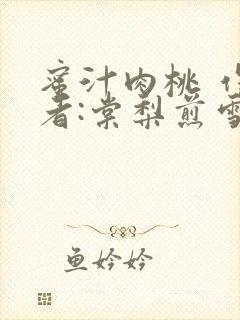 蜜汁肉桃
者:棠梨煎雪
鱼妗妗